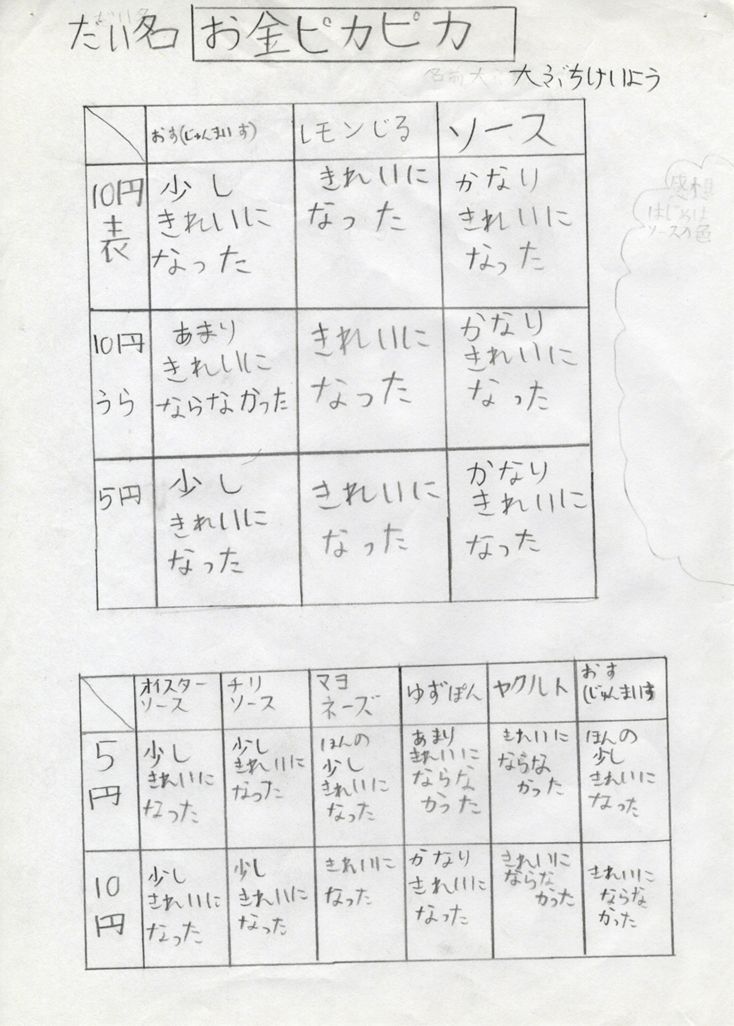 だい名 お金ピカピカ
大ぶちけいよう
おす(じゅんまいす) レモンじる ソース
10円表
少し
きれいに
なった
きれいに
なった
かなり
きれいに
なった
10円
うら
あまり
きれいに
ならなかった
きれいに
なった
かなり
きれいに
なった
5円
少し
きれいに
なった
きれいに
なった
かなり
きれいに
なった
感想
はじめは
ソースの色
オイスター
ソース
チリ
ソース
マヨ
ネーズ
ゆずぽん
ヤクルト
おす
(じゅんまいす
5円
少し
きれいに
なった
少し
きれいに
なった
ほんの
少し
きれいに
なった
あまり
きれいに
ならな
かった
きれいに
ならな
かった
ほんの
少し
きれいに
なった
10円
少し
きれいに
なった
少し
きれいに
なった
きれいに
なった
かなり
きれいに
なった
きれいに
ならな
かった
きれいに
ならな
かった